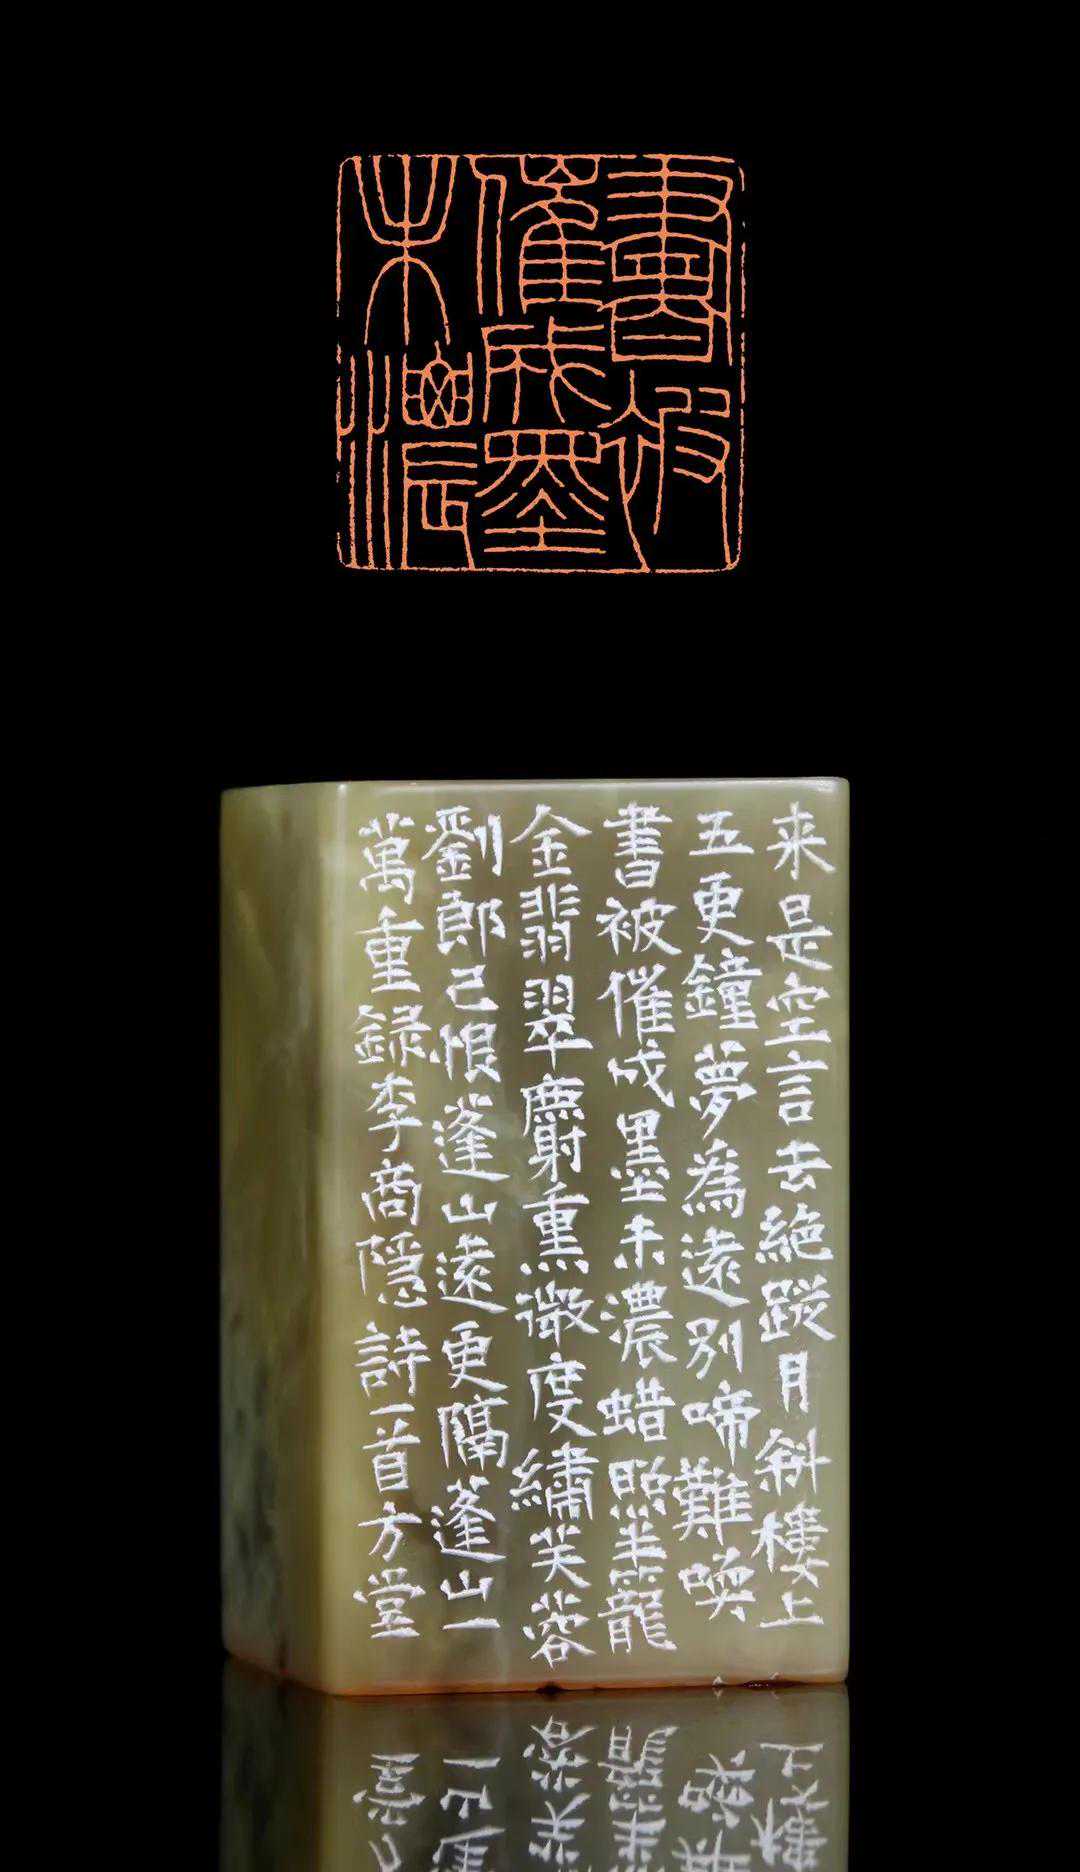 書被
催成墨
未濃
来是空言去絶蹤月斜樓上
五更鐘夢為遠別啼難喚
書被催成墨未濃蜡照半籠
金翡翠麝熏微度繡芙蓉
劉郎已恨蓬山遠更隔蓬山一
萬重録李商隱詩一首方堂